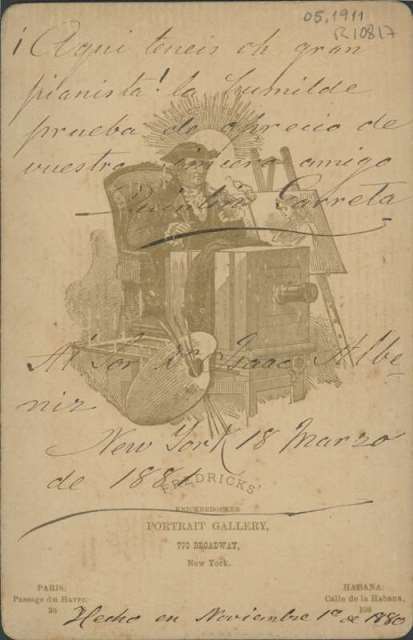 05.1911
R10817
¡Aqui teneis oh gran
pianista! la humilde
prueba de aprecio de
vuestro sincero amigo
Garreta
Al Sor Dn Isaac Albe-
niz
New York 18 Marzo
de 1881
FREDRICKS'
KNICKERBOCKER
PORTRAIT GALLERY,
770 BROADWAY,
New York.
PARIS:
Passage du Havre,
HABANA:
Calle de la Habana,
108
Hecho en Noviembre 1º de 1880